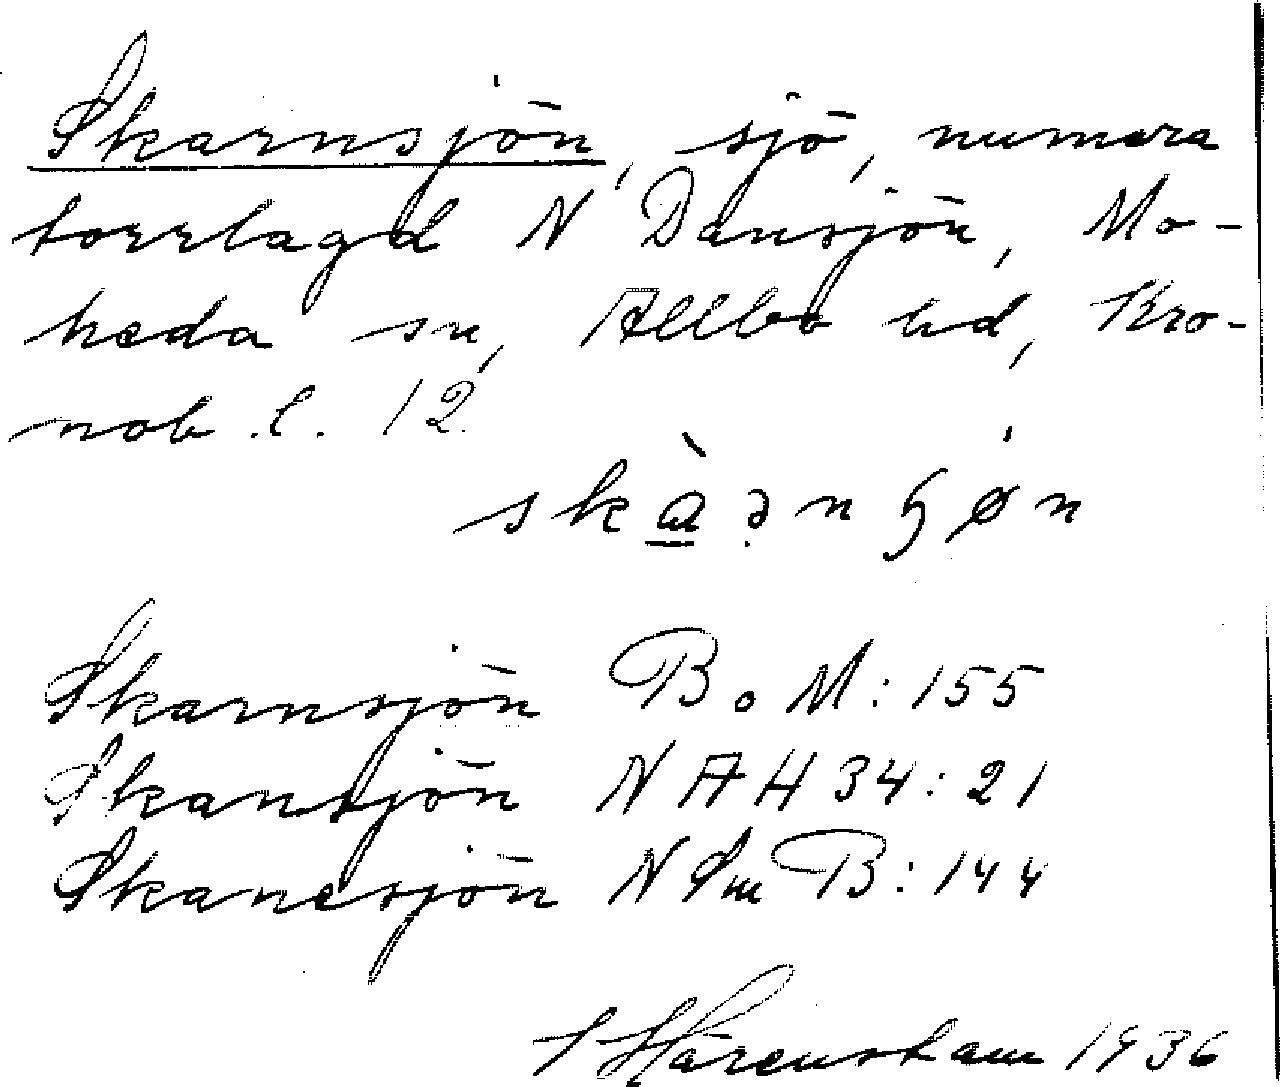 Skarnsjön, sjö, numera
torrlagd N Dansjön, Mo-
heda sn, Allbo hd, Kro-
nob. l. 12.
Skarnsjön B o M: 155
Skansjön N A H 34: 21
Skanesjön N Sm B: 144
Härenstam 1936